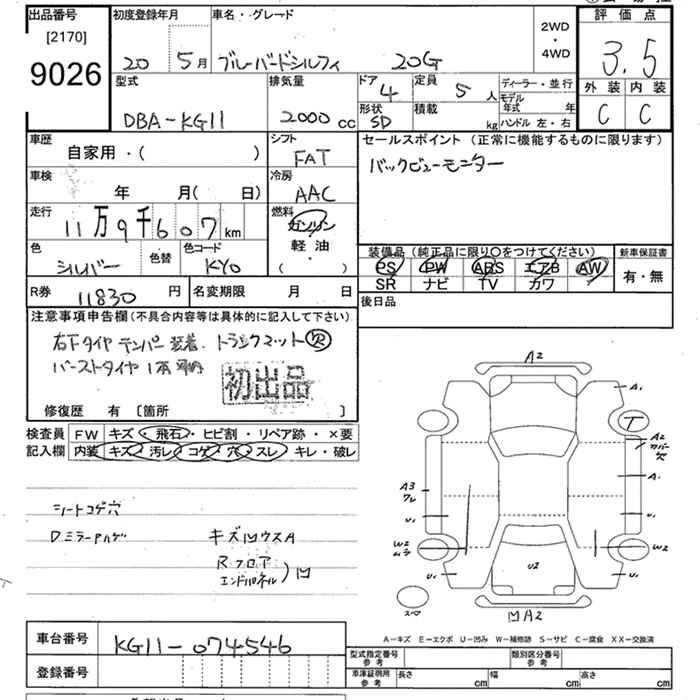 出品番号
[2170]
9026
初度登録年月
20 5月
車名・グレード
ブルーバードシルフィ 20G
2WD
・
4WD
評価点
3.5
外装 内装
C C
型式
DBA-KG11
排気量
2000 cc
ドア
4
定員
5人
形状
SD
積載
kg
ディーラー・並行
モデル年式 年
ハンドル 左・右
車歴
自家用・( )
シフト
FAT
セールスポイント(正常に機能するものに限ります)
バックビューモニター
車検
年 月( 日)
冷房
AAC
走行
11万9千607km
燃料
ガソリン
軽油
( )
色
シルバー
色替
色コード
KY0
装備品(純正品に限り○をつけてください)
PS PW ABS エアB AW
SR ナビ TV カワ
新車保証書
有・無
R券
11830円
名変期限 月 日
後日品
注意事項申告欄(不具合内容等は具体的に記入して下さい)
右下タイヤテンパー装着、トランクマット欠
バーストタイヤ1本
初出品
修復歴 有 [箇所 ]
検査員
記入欄
FW キズ・飛石・ヒビ割・リペア跡・×要
内装 キズ・汚レ・コゲ・穴・スレ・キレ・破レ
シートコゲ穴
DミラーPハゲ
キズ凹ウスA
Rフロア
エンドパネル)凹
A2
A1
T
A2
カバー
欠
A3
ワレ
A1
U1
U1
W2
ムラ
W2
U1
U2
U1
スペア
凹A2
A-キズ E-エクボ U-凹み W-補修跡 S-サビ C-腐食 XX-交換済
車台番号
KG11-074546
登録番号
型式指定番号
参考
類別区分番号
参考
車庫証明用
参考
長さ cm
幅 cm
高さ cm